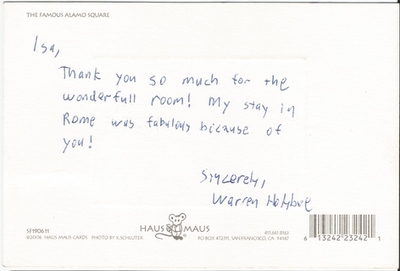 THE FAMOUS ALAMO SQUARE
Isa,
Thank you so much for the
wonderfull room! My stay in
Rome was fabulous because of
you!
Sincerely,
Warren
SF190611
©2006 HAUS MAUS CARDS PHOTO BY K.SCHLUTER
HAUS MAUS
PO BOX 47251, SAN FRANCISCO, CA 94147
6 13242 23242 1